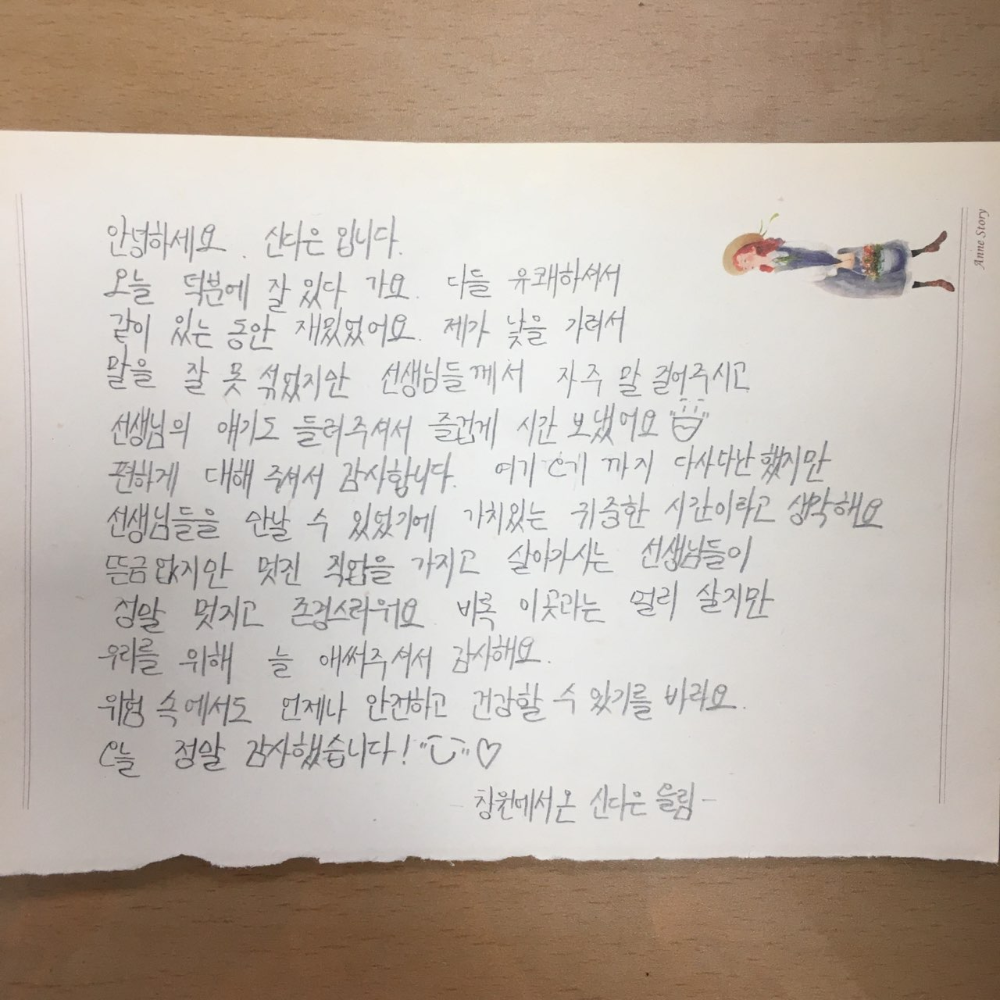 안녕하세요. 신다은 입니다.
오늘 덕분에 잘 있다 가요. 다들 유쾌하셔서
같이 있는 동안 재밌었어요. 제가 낯을 가려서
말을 잘 못 섞었지만 선생님들께서 자주 말 걸어주시고
선생님의 얘기도 들려주셔서 즐겁게 시간 보냈어요
편하게 대해 주셔서 감사합니다. 여기 오기 까지 다사다난했지만
선생님들을 만날 수 있었기에 가치있는 귀중한 시간이라고 생각해요
뜬금없지만 멋진 직업을 가지고 살아가시는 선생님들이
정말 멋지고 존경스러워요 비록 이곳과는 멀리 살지만
우리를 위해 늘 애써주셔서 감사해요.
위험 속에서도 언제나 안전하고 건강할 수 있기를 바라요.
오늘 정말 감사했습니다! ♡
- 창원에서 온 신다은 올림 -
Anne Story